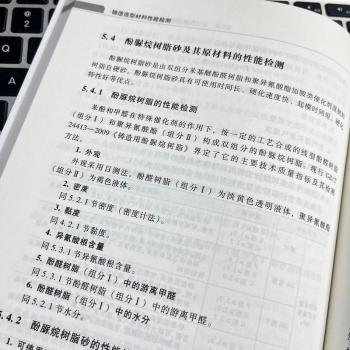 铸造造型材料性能检测
5.4 酚脲烷树脂砂及其原材料的性能检测
酚脲烷树脂砂是由双组分苯基醚酚醛树脂和聚异氰酸酯加胺类催化剂
树脂自硬砂。酚脲烷树脂砂具有可使用时间长、硬化速度快、起模时间短、
特性好等优点。
5.4.1 酚脲烷树脂的性能检测
苯酚和甲醛在特殊催化剂的作用下，按一定的工艺合成的线型酚醛树脂
（组分Ⅰ）和聚异氰酸酯（组分Ⅱ）构成双组分的酚脲烷树脂。现行 GB/T
24413—2009《铸造用酚脲烷树脂》界定了它的主要技术质量指标及其检测
方法。
1. 外观
外观采用目测法，酚醛树脂（组分Ⅰ）为淡黄色透明液体，聚异氰酸酯
（组分Ⅱ）为褐色液体。
2. 密度
同5.2.1节密度（密度计法）。
3. 黏度
同4.2.1节黏度。
4. 异氰酸根含量
同5.3.1节异氰酸根含量。
5. 酚醛树脂（组分Ⅰ）中的游离甲醛
同5.3.1节酚醛树脂（组分Ⅰ）中的游离甲醛。
6. 酚醛树脂（组分Ⅰ）中的水分
同5.2.1节水分。
5.4.2 酚脲烷树脂砂的性能
1. 可使用